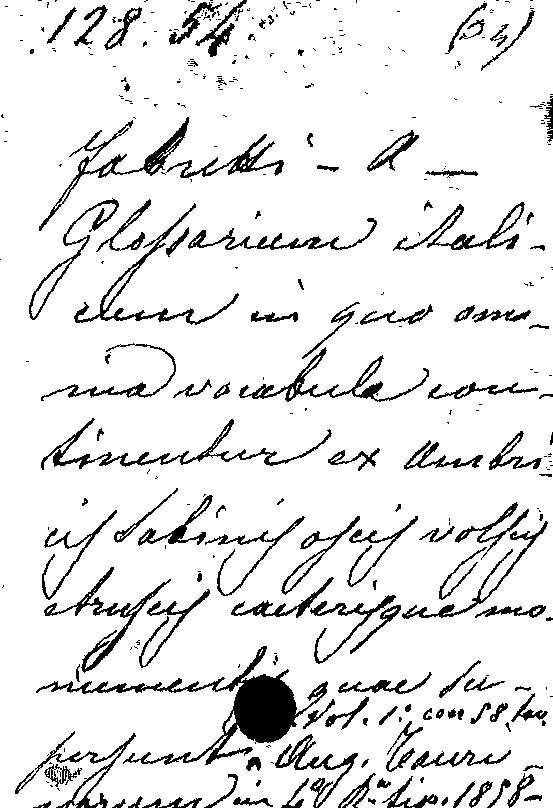 128. 54. (34)
Fabretti - A -
Glossarium itali-
cum in quo om-
nia vocabula con-
tinentur ex umbri
cis sabinis oscis volscis
etruscis caeterisque mo-
numentis quae su-
Vol. 1: con 58 tav.
persunt. Aug. Tauri-
norum in 4º 1858-